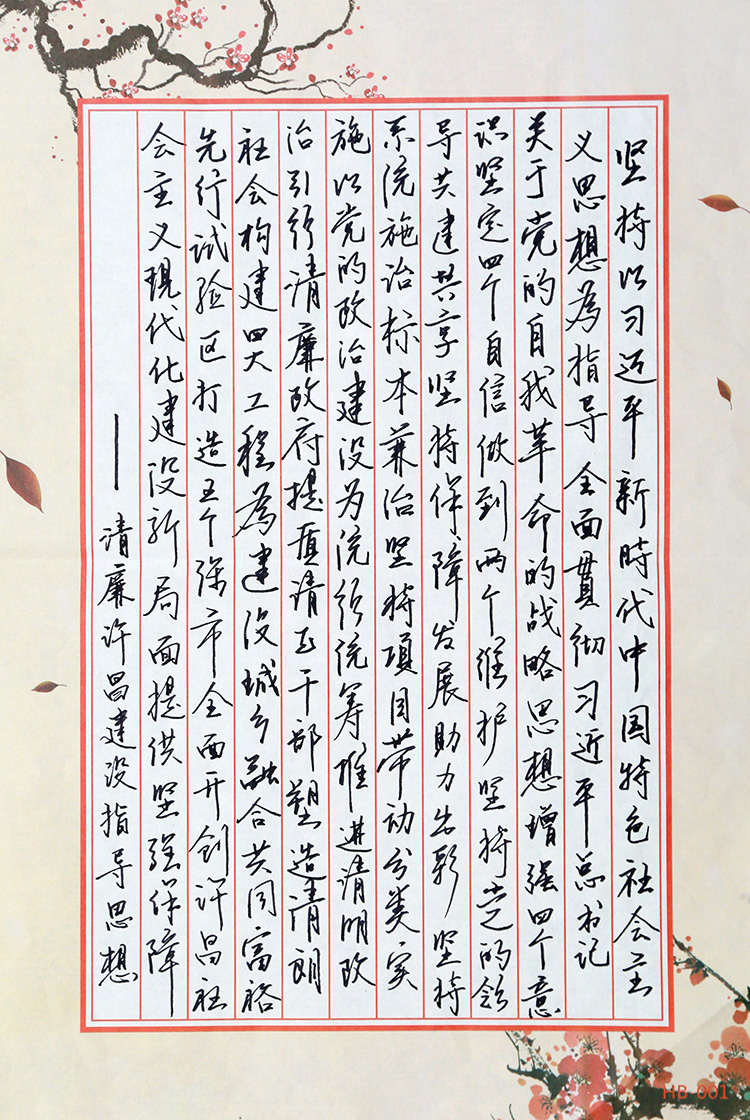 坚持以习近平新時代中国特色社会主
义思想為指导全面貫彻习近平总书记
关于党的自我革命的战略思想增强四个意
识坚定四个自信做到两个维护坚持党的领
导共建共享坚持保障发展助力出彩坚持
系统施治标本兼治坚持項目带动分类实
施以党的政治建设为统领统筹推进清明政
治引领清廉政府提质清正干部塑造清朗
社会构建四大工程為建设城乡融合共同富裕
先行试验区打造五个强市全面开创许昌社
会主义現代化建设新局面提供坚强保障
——清廉许昌建设指导思想
HB-001